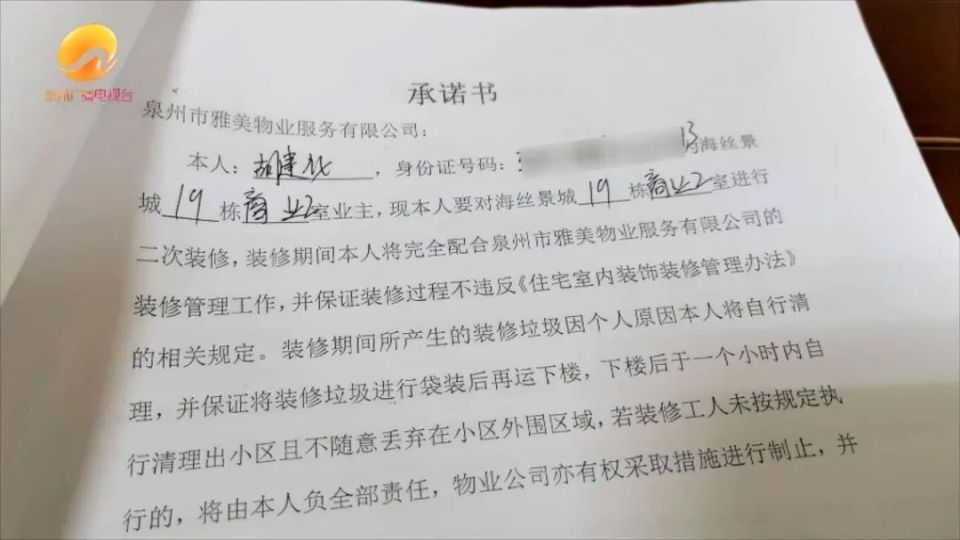 泉州广播电视台
承诺书
泉州市雅美物业服务有限公司：
本人：胡建化，身份证号码：13为海丝景
城19栋商业2室业主，现本人要对海丝景城19栋商业2室进行
二次装修，装修期间本人将完全配合泉州市雅美物业服务有限公司的
装修管理工作，并保证装修过程不违反《住宅室内装饰装修管理办法》
的相关规定。装修期间所产生的装修垃圾因个人原因本人将自行清
理，并保证将装修垃圾进行袋装后再运下楼，下楼后于一个小时内自
行清理出小区且不随意丢弃在小区外围区域，若装修工人未按规定执
行的，将由本人负全部责任，物业公司亦有权采取措施进行制止，并